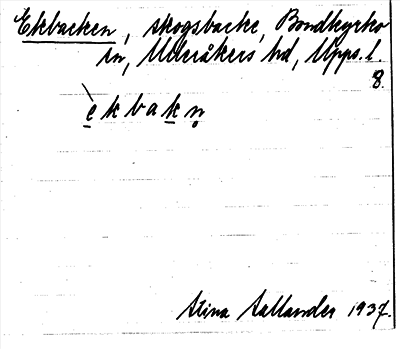 Ekbacken, skogsbacke, Bondkyrko
sn, Ulleråkers hd, Upps. l.
8.
̀ekbakn̥
Stina Sallander 1937.